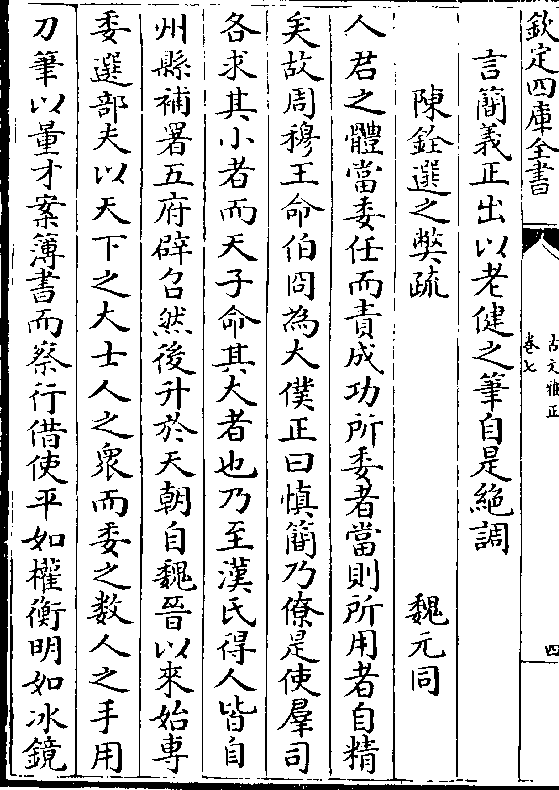 欽定四庫全書
古文雅正
卷七
四
言簡義正出以老健之筆自是絶調
陳銓選之弊疏 魏元同
人君之體當委任而責成功所委者當則所用者自精
矣故周穆王命伯冏為大僕正曰慎簡乃僚是使羣司
各求其小者而天子命其大者也乃至漢氏得人皆自
州縣補署五府辟召然後升於天朝自魏晉以來始專
委選部夫以天下之大士人之衆而委之数人之手用
刀筆以量才案簿書而察行借使平如權衡明如冰鏡